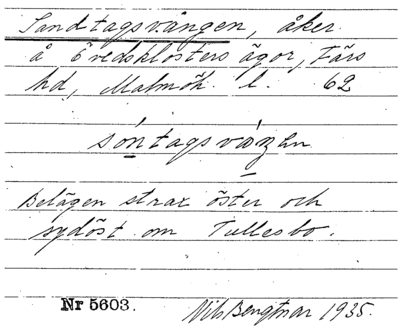 Sandtagsvången, åker
å Övedsklosters ägor, Färs
hd, Malmöh. l. 62
sóntagsvàŋen
Belägen strax öster och
sydöst om Tullesbo.
Nr 5603. Nils Bengtsson 1935.